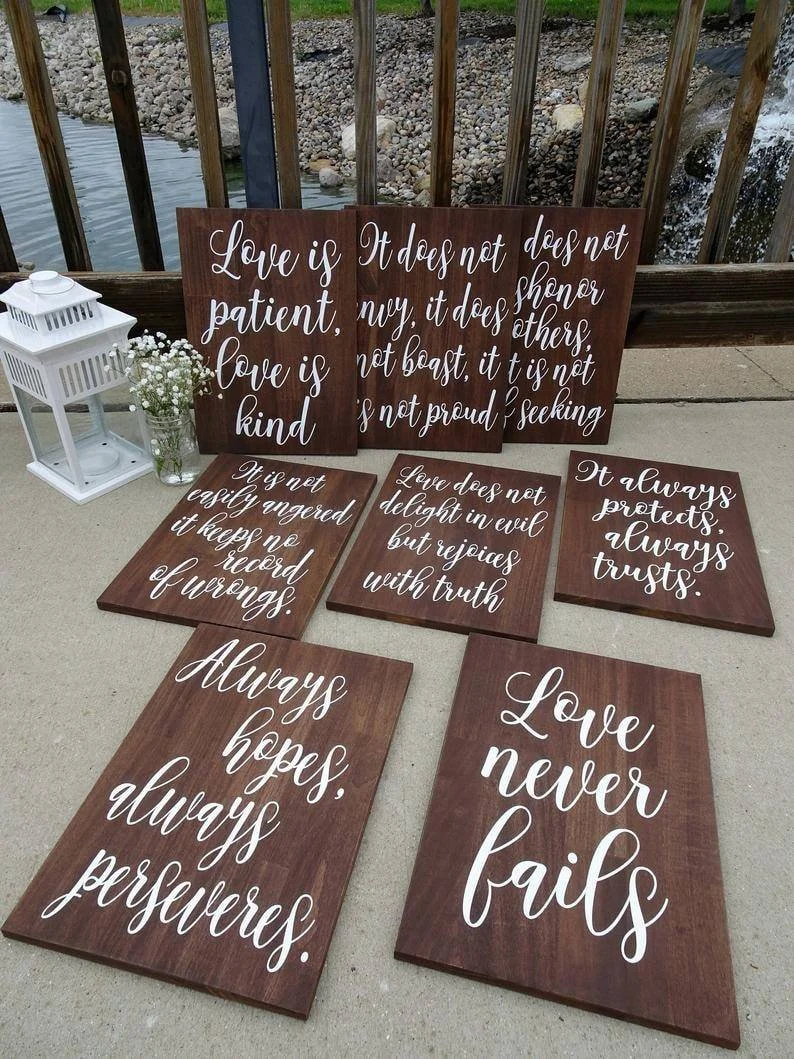 Love is
patient,
love is
kind
It does not
envy, it does
not boast, it
is not proud
does not
shonor
others,
it is not
f seeking
It is not
easily angered
it keeps no
record
of wrongs.
Love does not
delight in evil
but rejoices
with truth
It always
protects,
always
trusts.
Always
hopes,
always
perseveres.
Love
never
fails